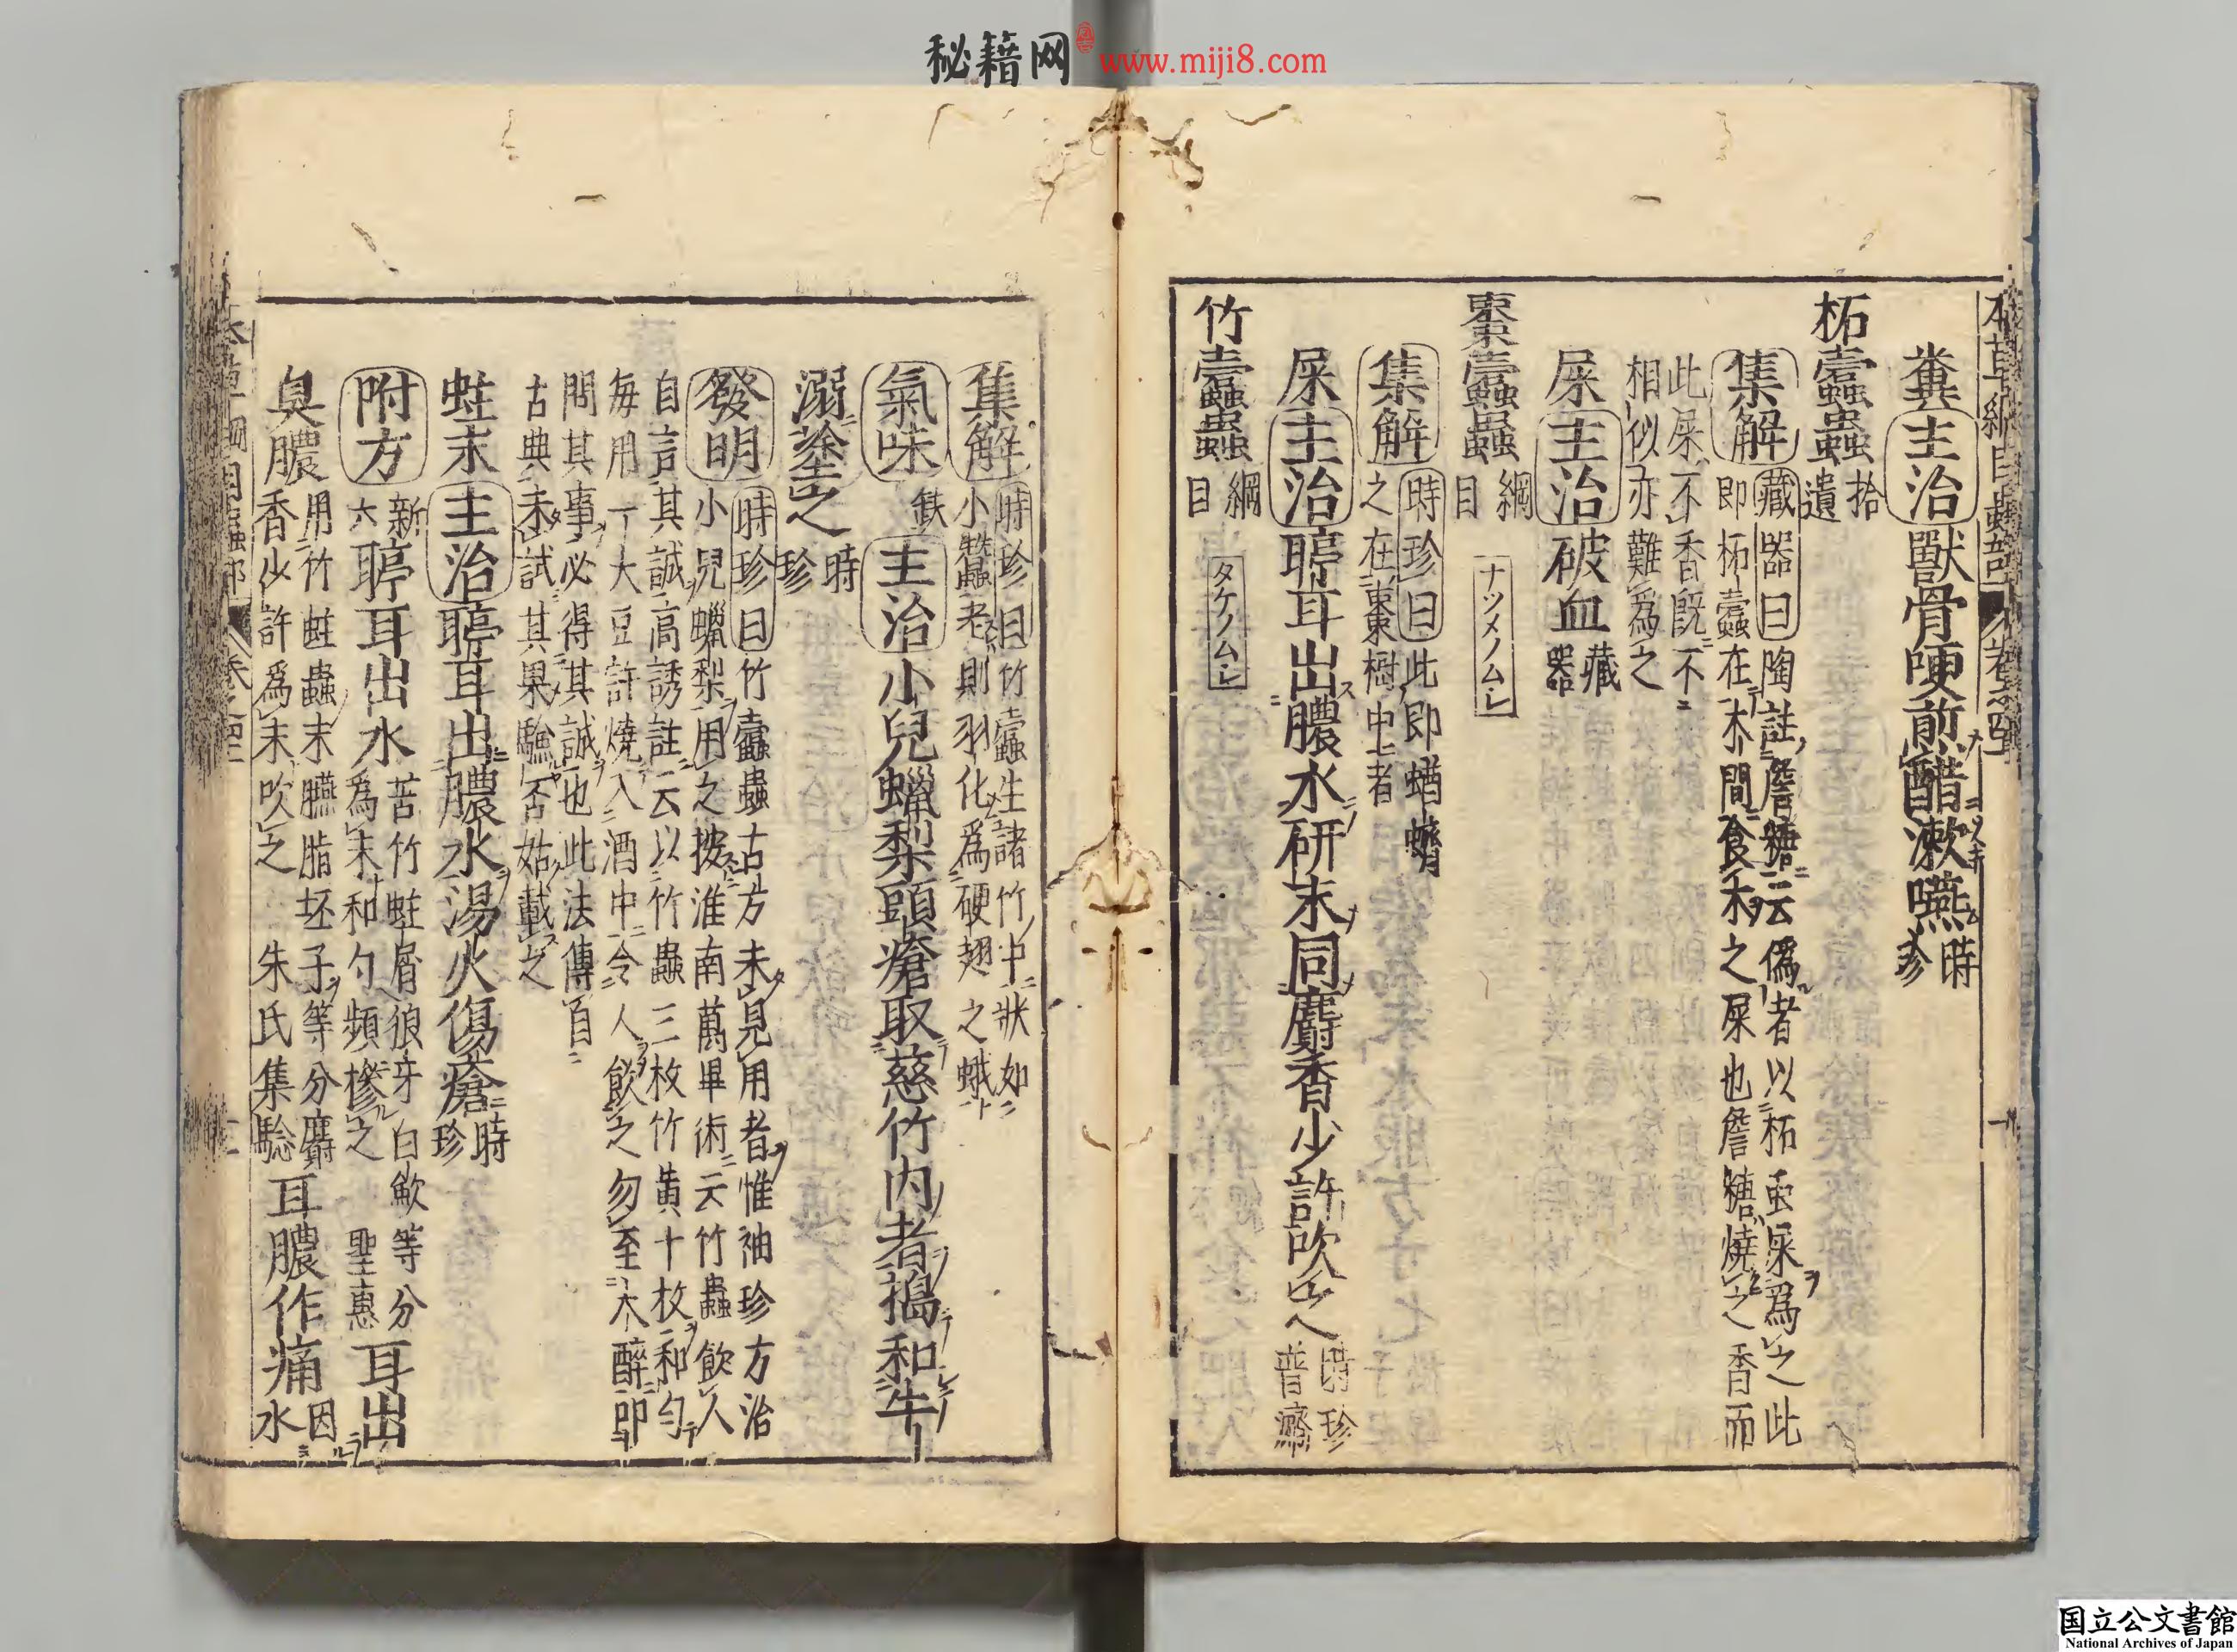 秘籍网 www.miji8.com
本草綱目蟲部
糞主治獸骨哽煎醋漱嚥時珍
柘蠹蟲拾遺
集解藏器曰陶註詹糖云偽者以柘虫屎為之此
即柘蠹在木間食木之屎也詹糖燒之香而
此屎不香既不
相似亦難為之
屎主治破血藏器
棗蠹蟲綱目 ナツメノムシ
集解時珍曰此即蝤蠐
之在棗樹中者
屎主治聤耳出膿水研末同麝香少許吹之時珍普濟
竹蠹蟲綱目 タケノムシ
集解時珍曰竹蠹生諸竹中狀如
小蠶老則羽化為硬翅之蛾
氣味缺主治小兒蠟梨頭瘡取慈竹内者搗和牛
溺塗之時珍
發明時珍曰竹蠹蟲古方未見用者惟袖珍方治
小兒蠟梨用之按淮南萬畢術云竹蟲飲人
自言其誠高誘註云以竹蟲三枚竹黃十枚和勻
每用一大豆許燒入酒中令人飲之勿至大醉即
問其事必得其誠也此法傳自
古典未試其果驗否姑載之
蛀末主治聤耳出膿水湯火傷瘡時珍
附方新六聤耳出水苦竹蛀屑狼牙白歛等分為末和勻頻摻之聖惠耳出
臭膿用竹蛀蟲末臙脂坯子等分麝香少許為末吹之朱氏集驗耳膿作痛因水
国立公文書館
National Archives of Japan